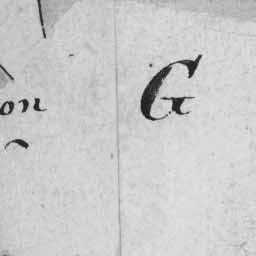 on G